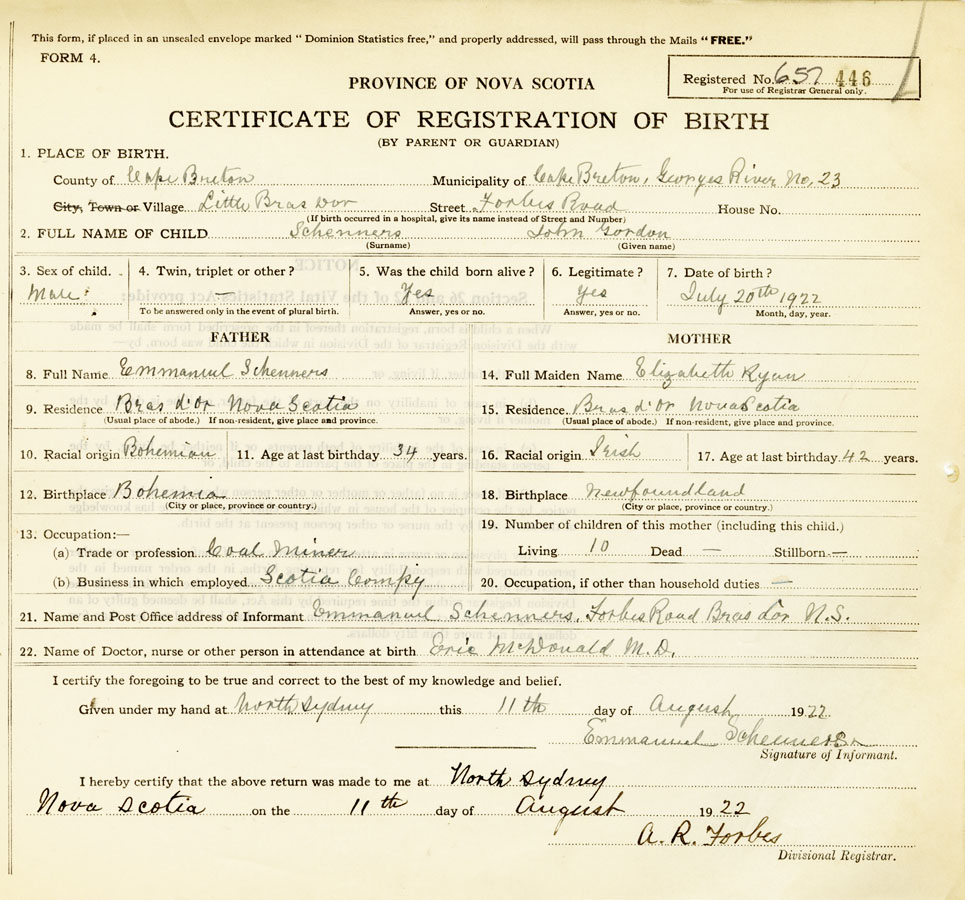 This form, if placed in an unsealed envelope marked “ Dominion Statistics free,” and properly addressed, will pass through the Mails “FREE.”
FORM 4.
Registered No. 657 446
For use of Registrar General only.
PROVINCE OF NOVA SCOTIA
CERTIFICATE OF REGISTRATION OF BIRTH
(BY PARENT OR GUARDIAN)
1. PLACE OF BIRTH.
County of Cape Breton Municipality of Cape Breton, Georges River No. 23
City, Town or Village Little Bras Dor Street Forbes Road House No.
(If birth occurred in a hospital, give its name instead of Street and Number)
2. FULL NAME OF CHILD Schenners John Gordon
(Surname) (Given name)
3. Sex of child. 4. Twin, triplet or other? 5. Was the child born alive? 6. Legitimate? 7. Date of birth?
Male — Yes Yes July 20th 1922
To be answered only in the event of plural birth. Answer, yes or no. Answer, yes or no. Month, day, year.
FATHER MOTHER
8. Full Name Emmanuel Schenners 14. Full Maiden Name Elizabeth Ryan
9. Residence Bras d'Or Nova Scotia 15. Residence Bras d'Or Nova Scotia
(Usual place of abode.) If non-resident, give place and province. (Usual place of abode.) If non-resident, give place and province.
10. Racial origin Bohemian 11. Age at last birthday 34 years. 16. Racial origin Irish 17. Age at last birthday 42 years.
12. Birthplace Bohemia 18. Birthplace Newfoundland
(City or place, province or country.) (City or place, province or country.)
13. Occupation:— 19. Number of children of this mother (including this child.)
(a) Trade or profession Coal Miner Living 10 Dead — Stillborn —
(b) Business in which employed Scotia Compy 20. Occupation, if other than household duties —
21. Name and Post Office address of Informant Emmanuel Schenners, Forbes Road Bras dor N.S.
22. Name of Doctor, nurse or other person in attendance at birth Eric McDonald M.D.
I certify the foregoing to be true and correct to the best of my knowledge and belief.
Given under my hand at North Sydney this 11th day of August 1922
Emmanuel Schenners
Signature of Informant.
I hereby certify that the above return was made to me at North Sydney
Nova Scotia on the 11th day of August 1922
A. R. Forbes
Divisional Registrar.